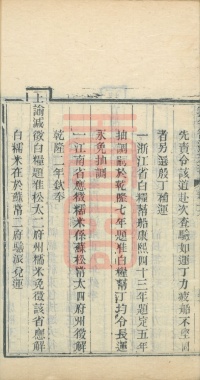 先責令該道赴次查驗如運丁力疲船不堅固
者另選殷丁補運
一浙江省白糧幫船康熙四十三年題定五年
抽調嗣於乾隆七年題准白糧幫丁均令長運
永免抽調
一江南省應徵糯米係蘇松常太四府州徵解
乾隆二年欽奉
上諭減徵白糧題准松太二府州糯米免徵該省應解
白糯米在於蘇常二府驗派兌運